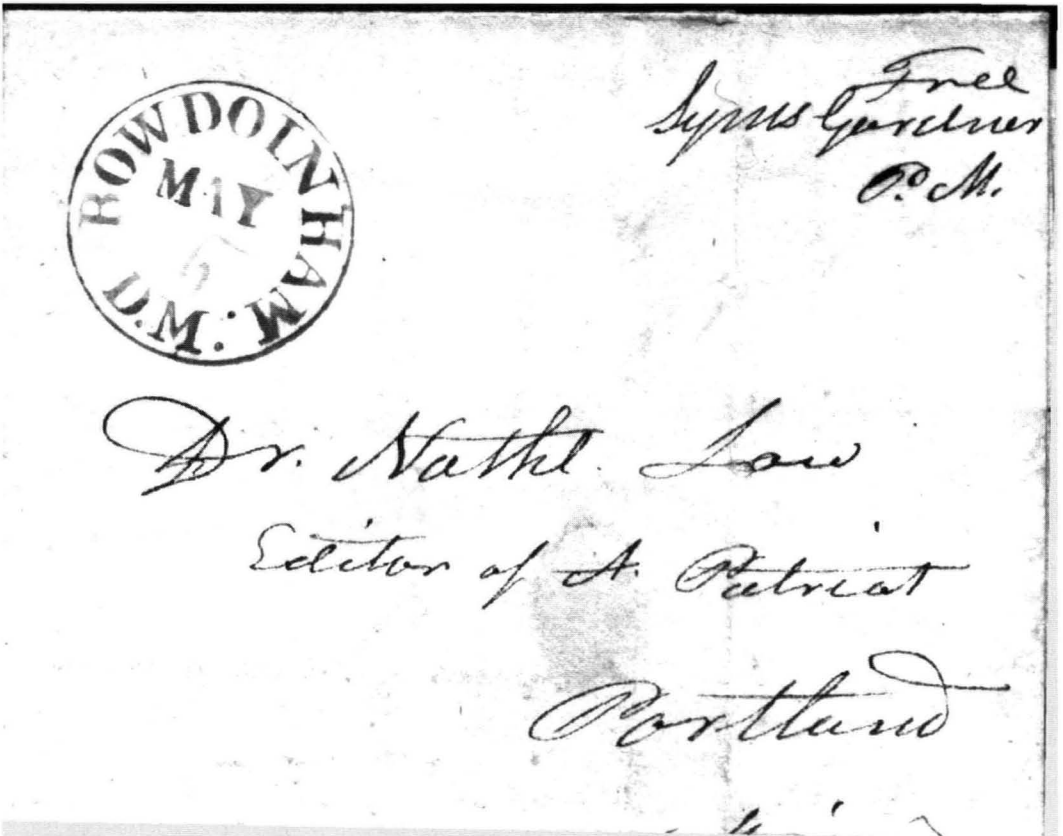 BOWDOINHAM. D.M.
MAY
Free
Syms Gardner
P. M.
Dr. Nathl. Low
Editor of A. Patriot
Portland